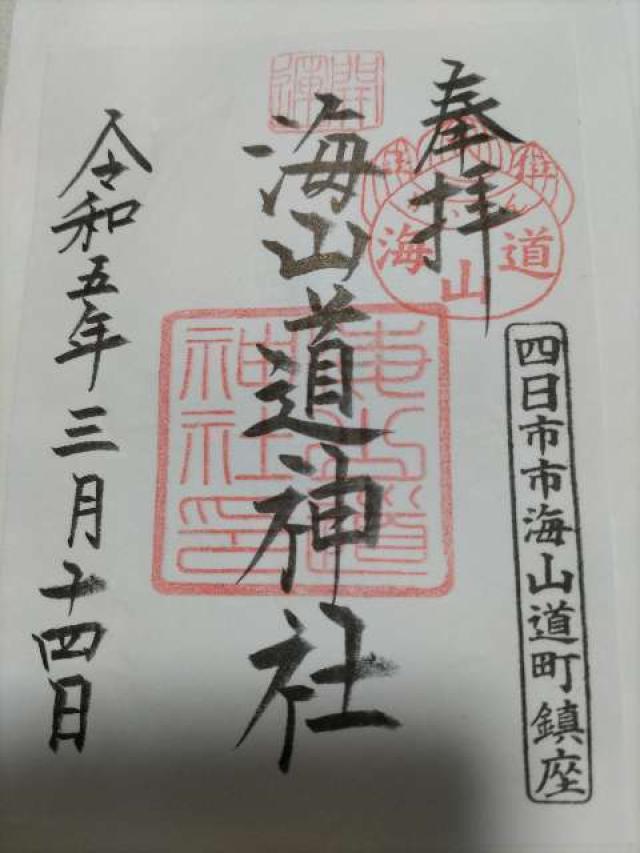 奉拝
海山道
四日市市海山道町鎮座
開運
海山道神社
海山道神社印
令和五年三月十四日